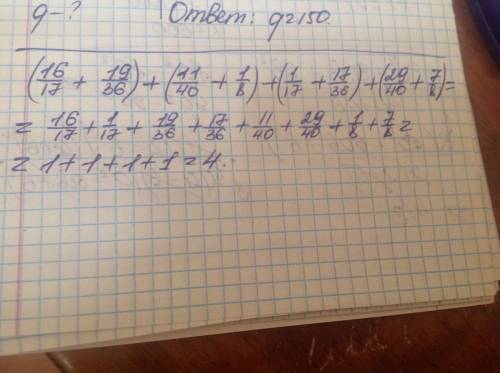 g - ? Ответ: g = 150.
(16/17 + 19/36) + (11/40 + 1/8) + (1/17 + 17/36) + (29/40 + 7/8) =
= 16/17 + 1/17 + 19/36 + 17/36 + 11/40 + 29/40 + 1/8 + 7/8 =
= 1 + 1 + 1 + 1 = 4.